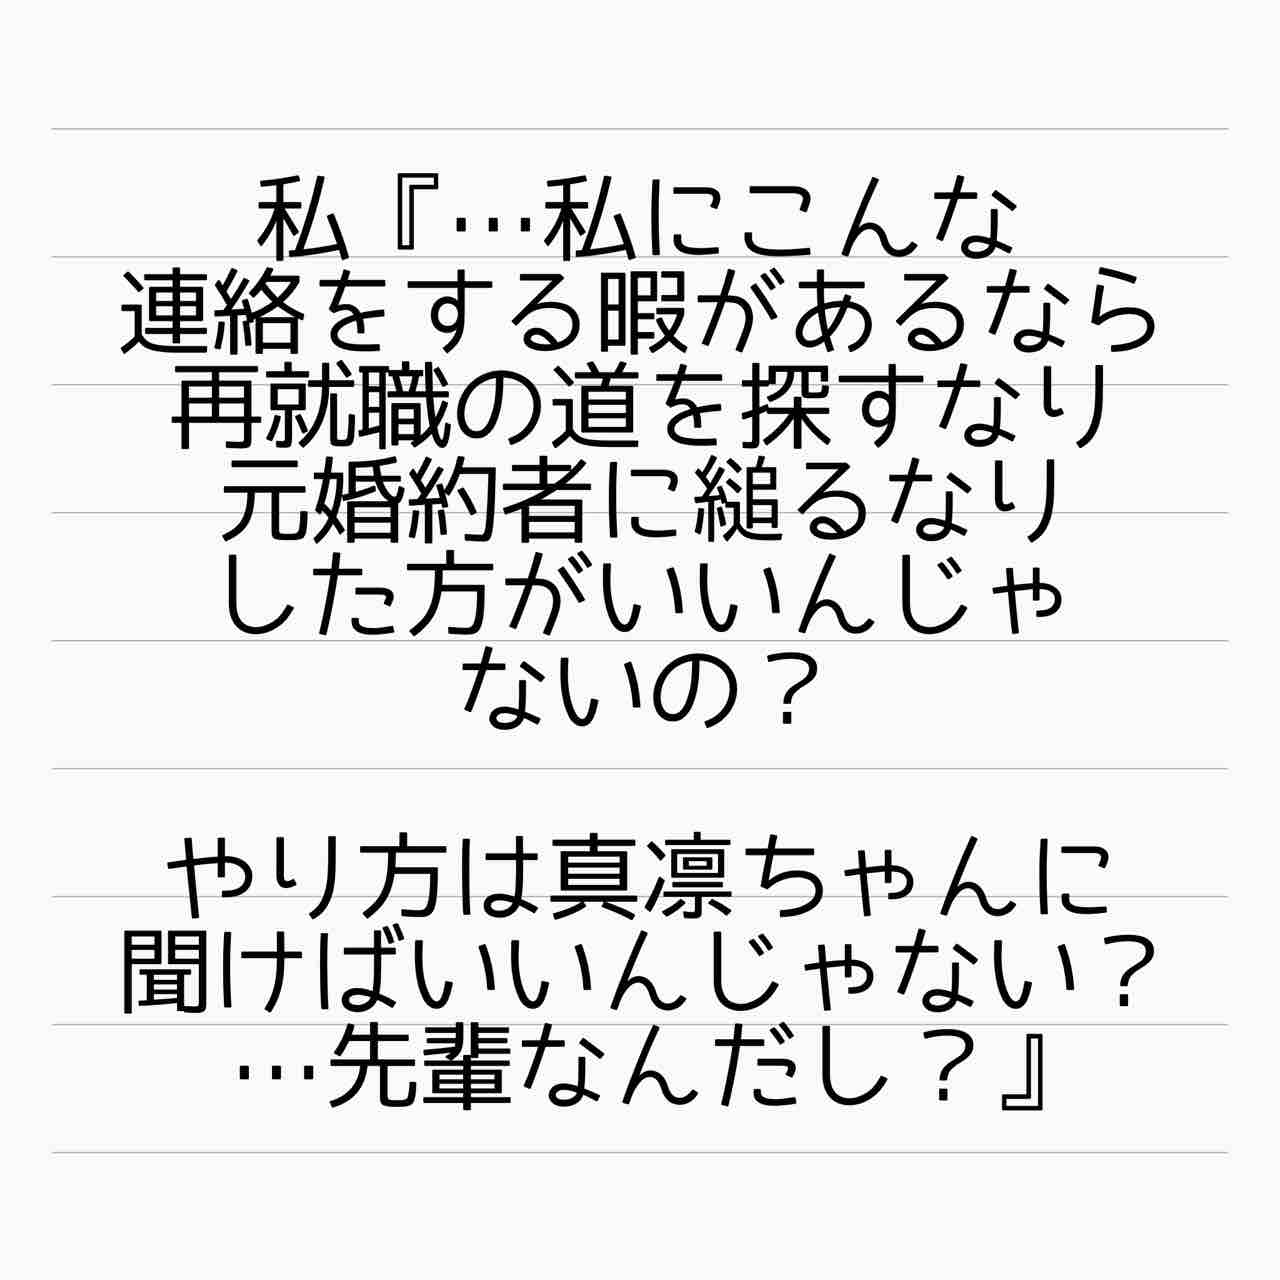 私『…私にこんな
連絡をする暇があるなら
再就職の道を探すなり
元婚約者に縋るなり
した方がいいんじゃ
ないの？
やり方は真凛ちゃんに
聞けばいいんじゃない？
…先輩なんだし？』